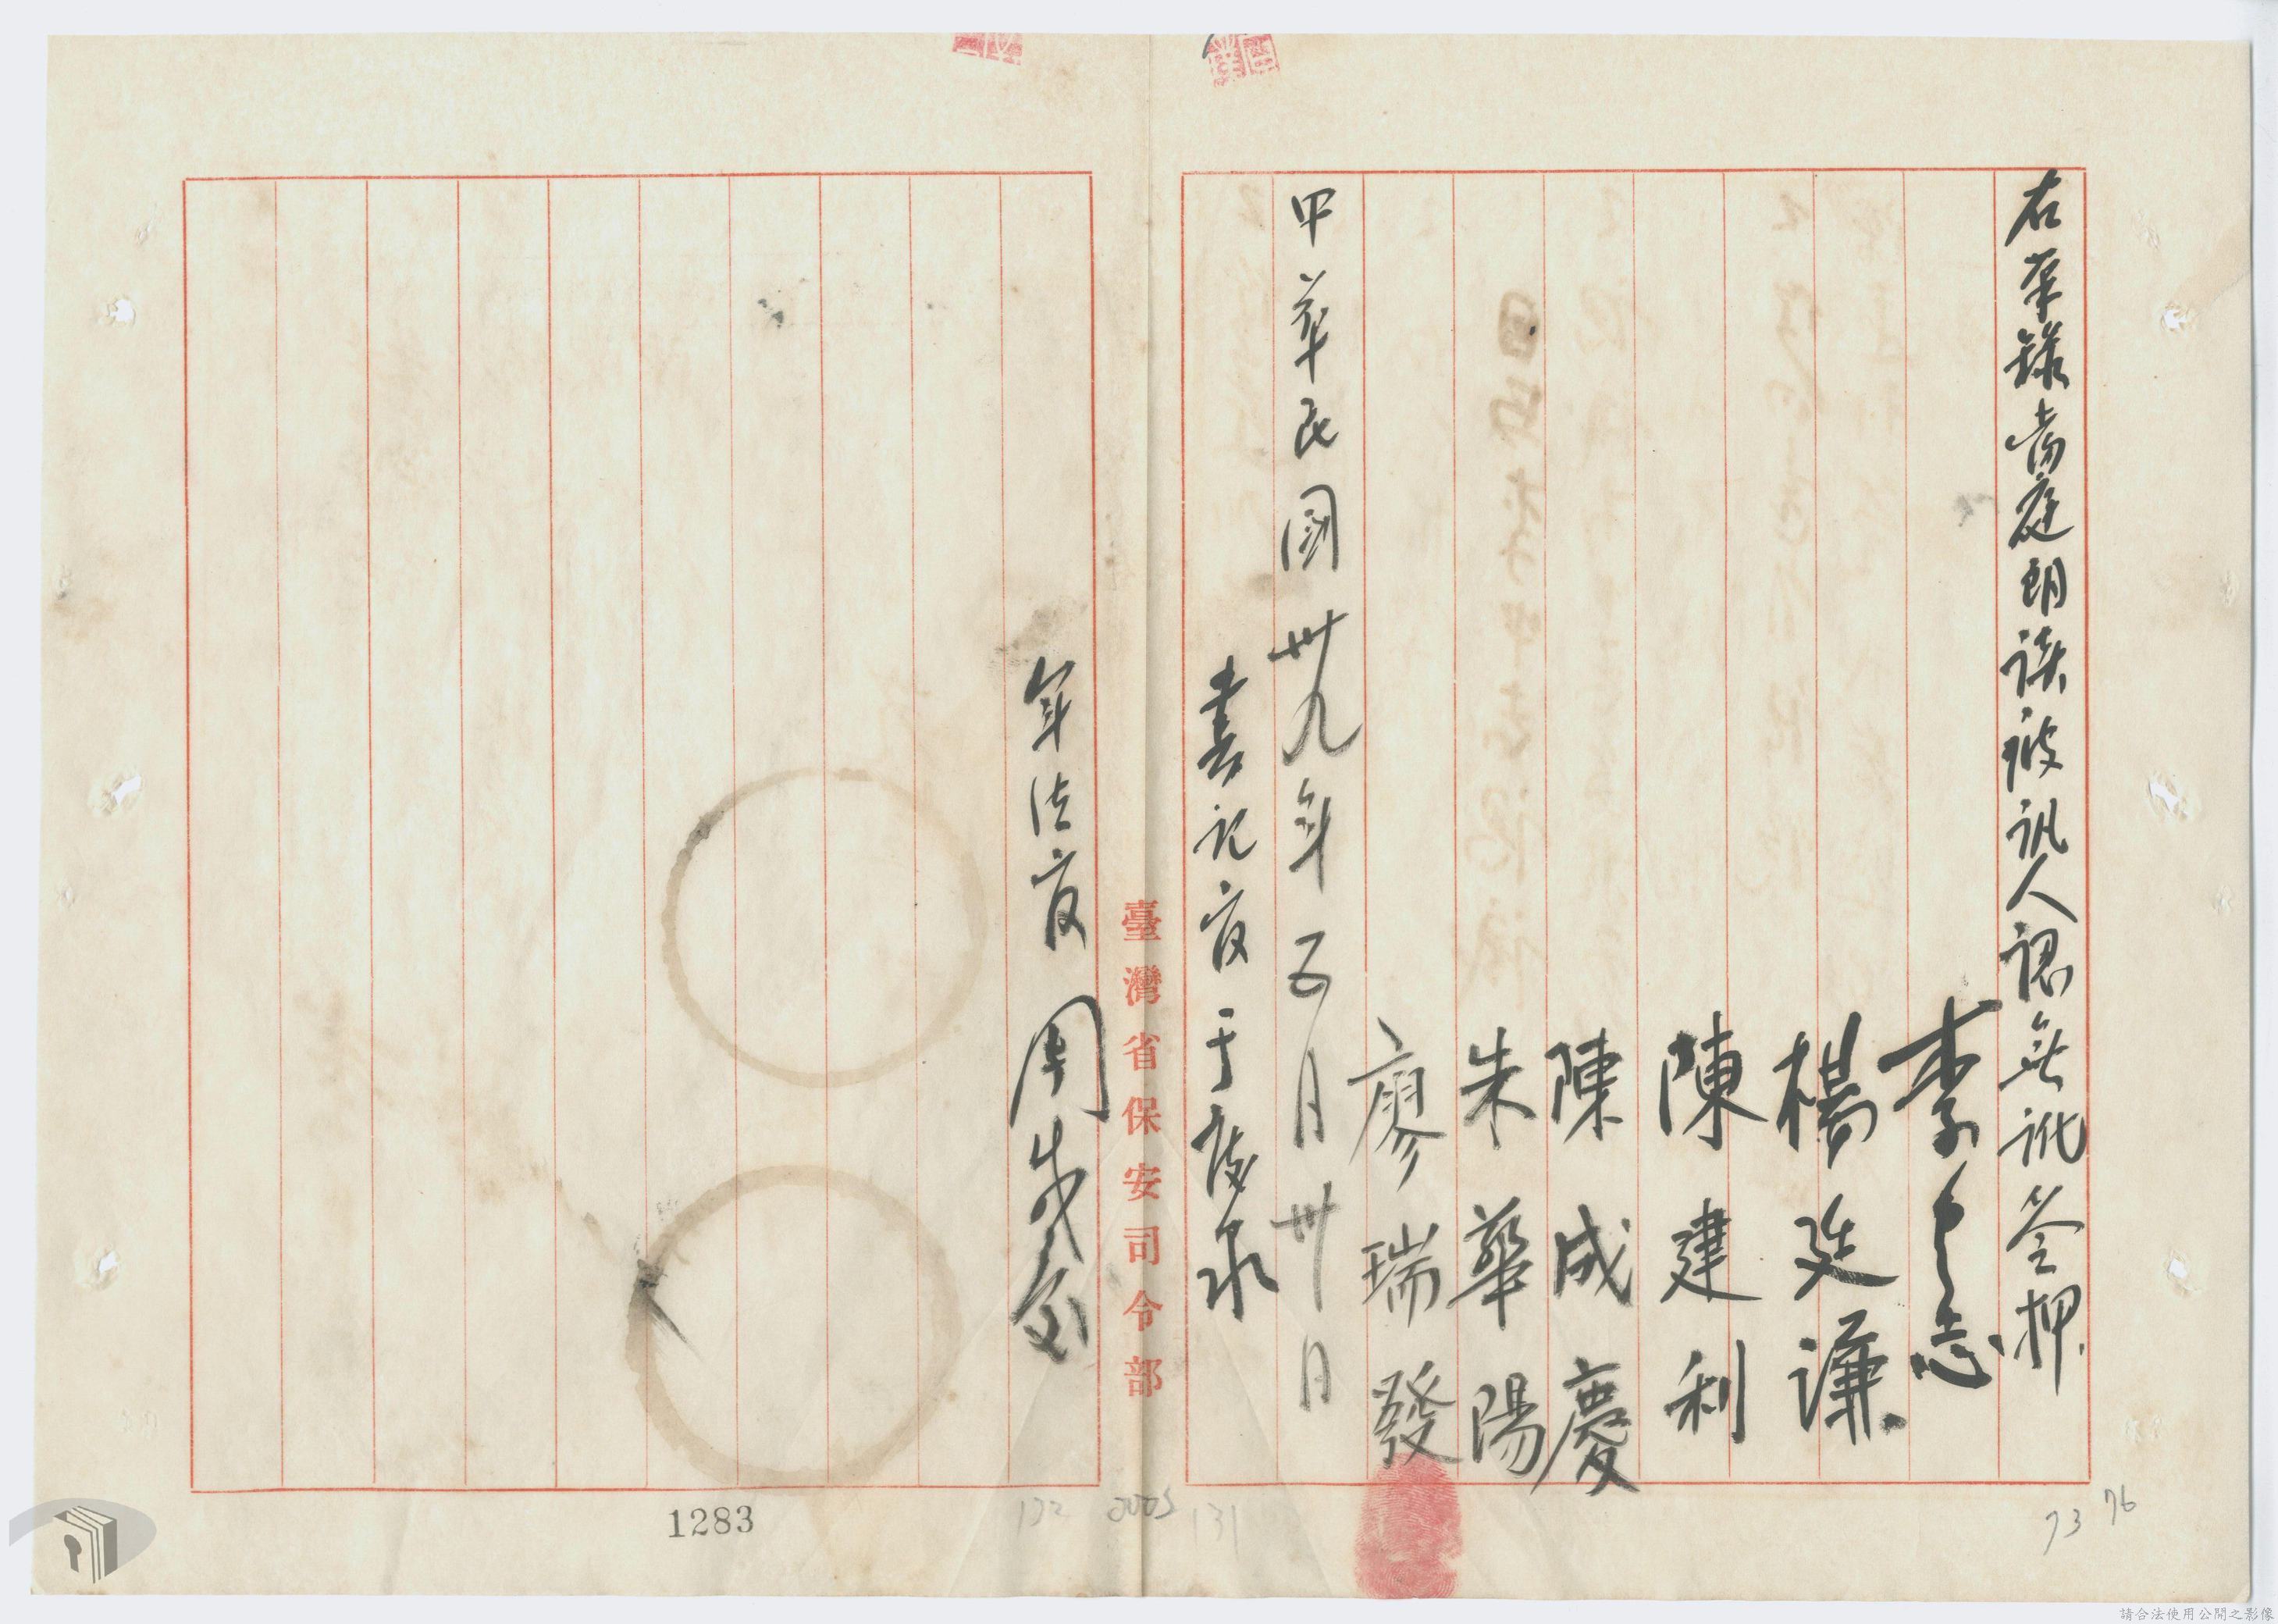 右筆錄當庭朗讀被訊人認無訛簽押
李
志
楊廷謙
陳建利
陳成慶
朱華陽
廖瑞發
中華民國卅九年五月卅日
書記官 于
軍法官 周
臺灣省保安司令部
1283
131
132
73
76
請合法使用公開之影像